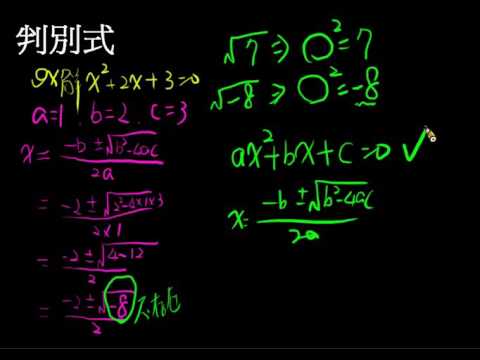 判別式
ex解 x²+2x+3=0
a=1, b=2, c=3
x = (-b ± √(b²-4ac)) / 2a
= (-2 ± √(2²-4×1×3)) / 2×1
= (-2 ± √(4-12)) / 2
= (-2 ± √-8) / 2 不存在
√7 ⇒ ○² = 7
√-8 ⇒ ○² = -8
ax²+bx+c=0 ✓
x = (-b ± √(b²-4ac)) / 2a